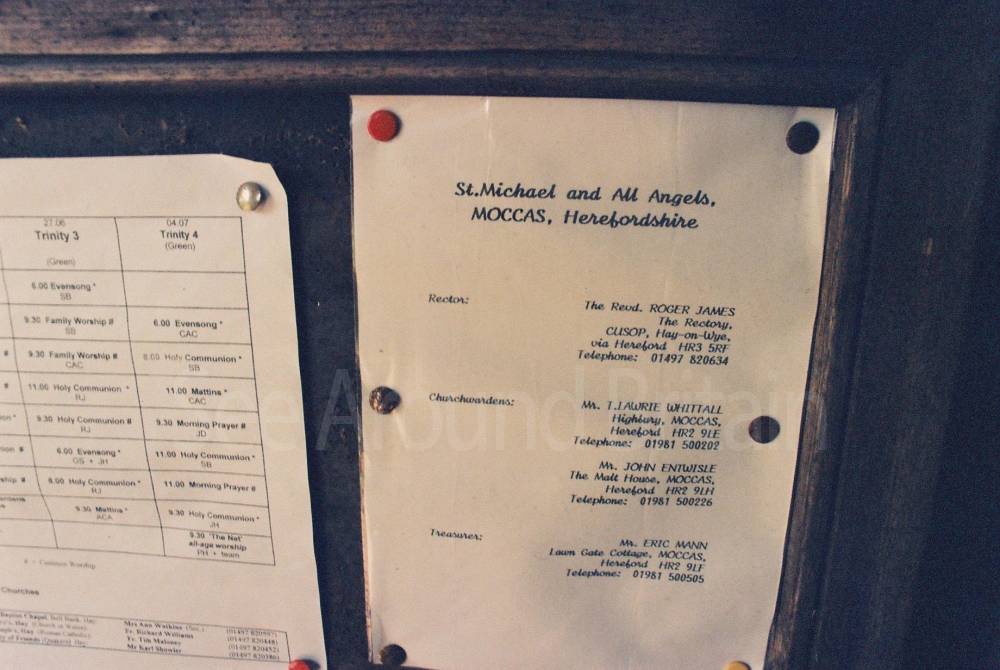 27.06
Trinity 3
(Green)
6.00 Evensong *
SB
9.30 Family Worship #
SB
# 9.30 Family Worship #
CAC
# 11.00 Holy Communion *
RJ
9.30 Holy Communion #
RJ
6.00 Evensong *
GS + JH
8.00 Holy Communion *
RJ
9.30 Mattins *
ACA
04.07
Trinity 4
(Green)
6.00 Evensong *
CAC
8.00 Holy Communion *
SB
11.00 Mattins *
CAC
9.30 Morning Prayer #
JD
11.00 Holy Communion *
SB
11.00 Morning Prayer #
9.30 Holy Communion *
JH
9.30 'The Net'
all-age worship
RH + team
# = Common Worship
Churches
Baptist Chapel, Bell Bank, Hay
Hay (Church in Wales)
Hay (Roman Catholic)
of Friends (Quakers) Hay
Mrs Ann Watkins (Sec.)
Fr. Richard Williams
Fr. Tim Maloney
Mr Karl Showler
(01497 820597)
(01497 820448)
(01497 820452)
(01497 820380)
St.Michael and All Angels,
MOCCAS, Herefordshire
Rector:
The Revd. ROGER JAMES
The Rectory,
CUSOP, Hay-on-Wye,
via Hereford HR3 5RF
Telephone: 01497 820634
Churchwardens:
Mr. T.LAWRIE WHITTALL
Highbury, MOCCAS,
Hereford HR2 9LE
Telephone: 01981 500202
Mr. JOHN ENTWISLE
The Malt House, MOCCAS,
Hereford HR2 9LH
Telephone: 01981 500226
Treasurer:
Mr. ERIC MANN
Lawn Gate Cottage, MOCCAS,
Hereford HR2 9LF
Telephone: 01981 500505
See Around Britain